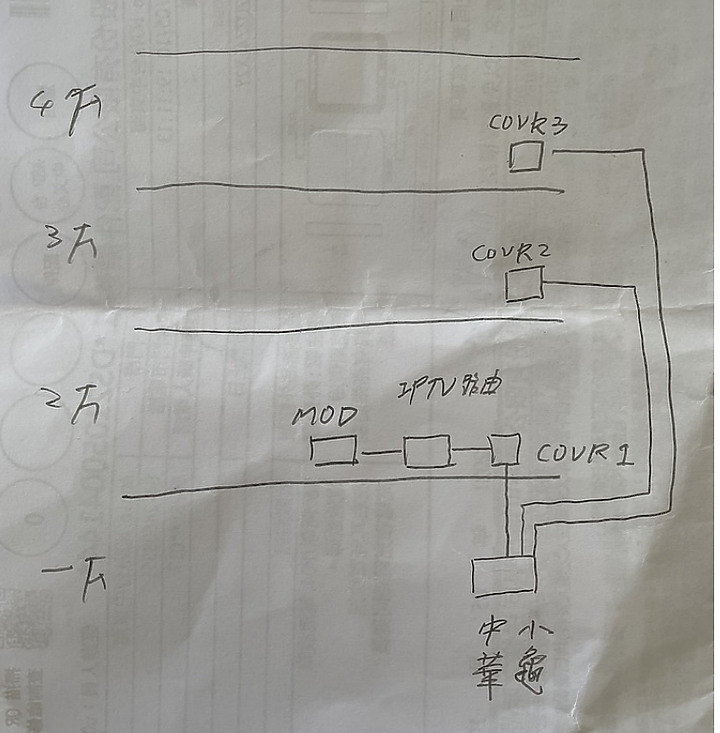 4下
COVR3
3下
COVR2
2下
MOD
IPTV路由
COVR1
一下
中華
小龜